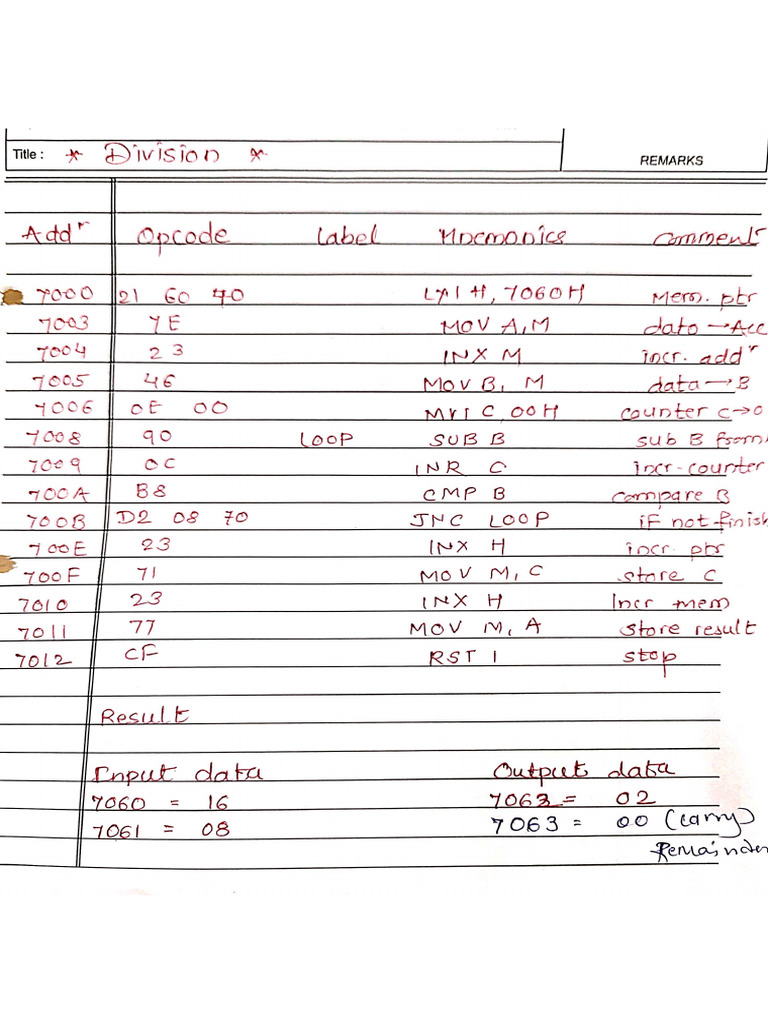 Title : * Division *
REMARKS
Addr Opcode Label Mnemonics Comment
7000 21 60 70 LXI H, 7060H Mem. ptr
7003 7E MOV A, M data → Acc
7004 23 INX M incr. addr
7005 46 MOV B, M data → B
7006 0E 00 MVI C, 00H counter C → 0
7008 90 LOOP SUB B sub B from
7009 0C INR C incr-counter
700A B8 CMP B compare B
700B D2 08 70 JNC LOOP if not-finish
700E 23 INX H incr. ptr
700F 71 MOV M, C store C
7010 23 INX H Incr mem
7011 77 MOV M, A store result
7012 CF RST 1 stop
Result
Input data Output data
7060 = 16 7062 = 02
7061 = 08 7063 = 00 (carry)
Remainder